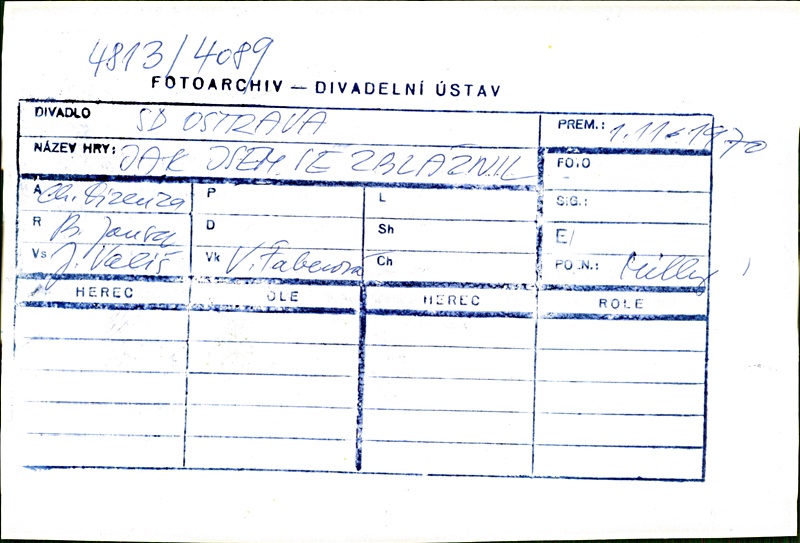 4813/4089
FOTOARCHIV — DIVADELNÍ ÚSTAV
DIVADLO SD OSTRAVA PREM.: 1.11.1970
NÁZEV HRY: JAK JSEM SE ZBLÁZNIL FOTO
A Ch. P L SIG.:
R B. D Sh E/
Vs J. Vališ Vk V. Faberová Ch POZN.:
HEREC ROLE HEREC ROLE